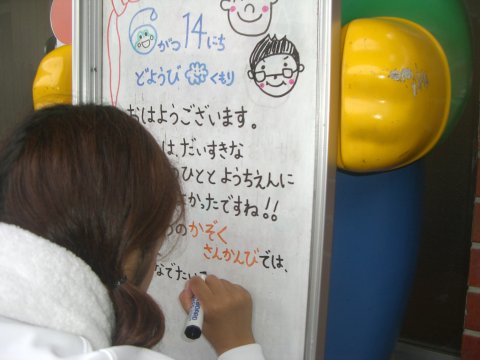 6がつ14にち
どようび くもり
おはようございます。
は、だいすきな
ひととようちえんに
かったですね!!
のかぞく
さんかんびでは、
なでたい